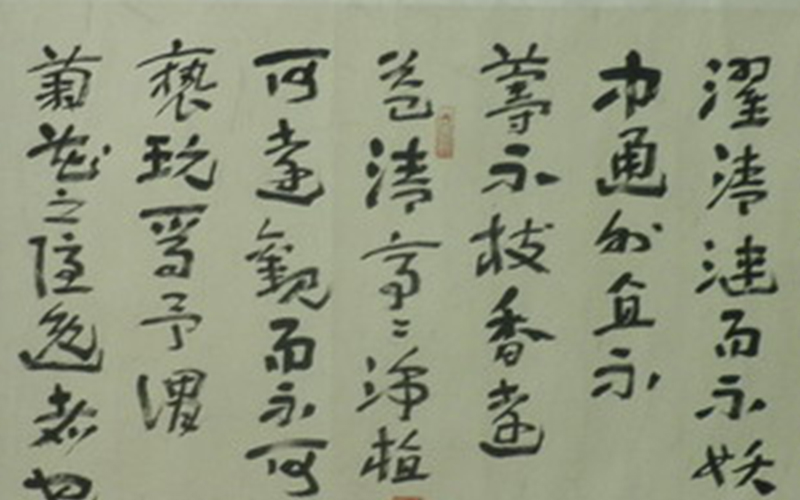 濯清漣而不妖
中通外直不
蔓不枝香遠
益清亭〻淨植
可遠觀而不可
褻玩焉予謂
菊花之隱逸者也